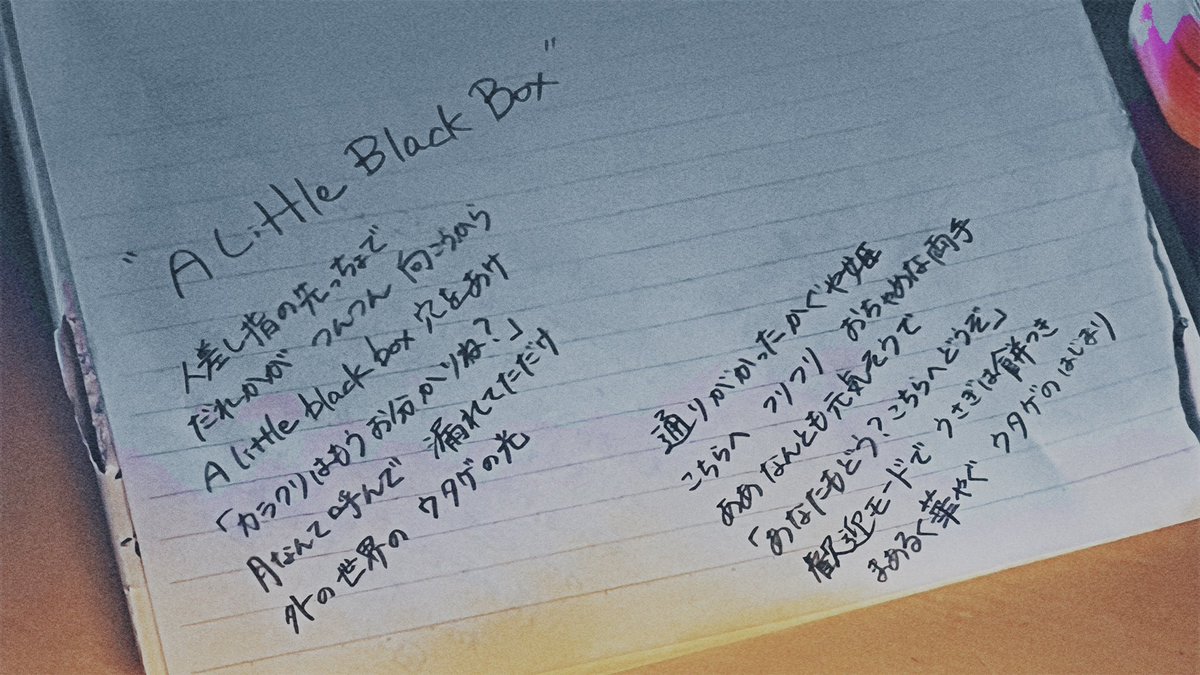 "A Little Black Box"
人差し指の先っちょで
だれかが つんつん 向こうから
A little black box 穴をあけ
「カラクリはもうお分かりね?」
月なんて呼んで 漏れてただけ
外の世界の ウタゲの光
通りがかったかぐや姫
こちらへ フリフリ おちゃめな両手
ああ なんとも元気そうで
「あなたもどう?こちらへどうぞ」
歓迎モードで うさぎは餅つき
まあるく華やぐ ウタゲのはじまり